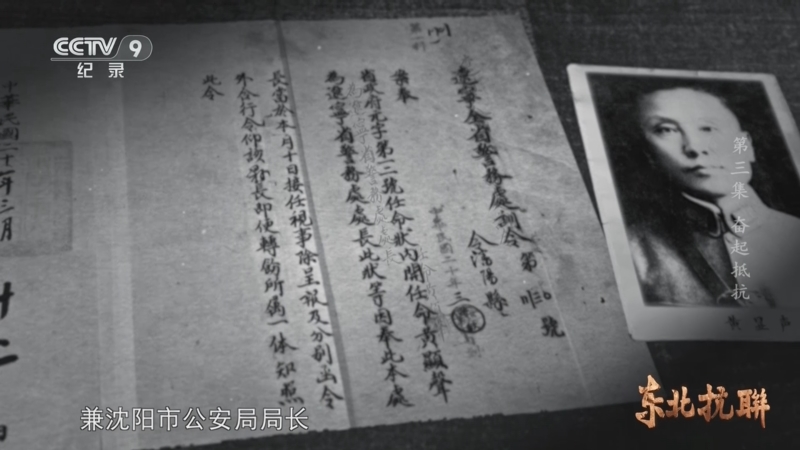 CCTV 9
纪录
遼寧全省警務處訓令 第 號
令瀋陽縣
案奉
省政府元字第一二號任命狀內開任命黃顯聲
為遼寧省警務處處長此狀等因奉此本處
長當於本月十日接任視事除呈報及分別函令
外合行令仰該縣長即便轉飭所屬一体知照
此令
中華民國二十年三月
廿二 日
第三集 奋起抵抗
黄显声
兼沈阳市公安局局长
东北抗联